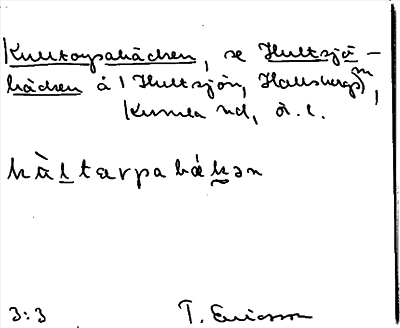 Kulltorpabäcken, se Hultsjö-
bäcken å 1 Hultsjön, Hallsbergs m,
Kumla hd, ö. l.
kàltarpabákən
3:3 T. Ericsson